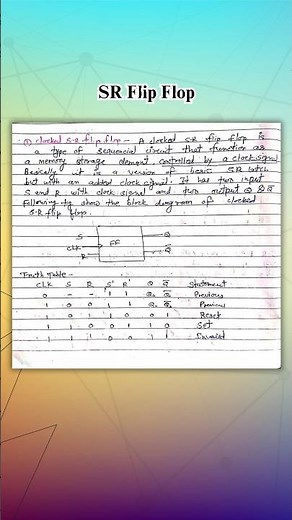 SR Flip Flop
① clocked S-R flip flop :- A clocked SR flip flop is
a type of sequencial circuit that function as
a memory storage element, controlled by a clock signal
Basically it is a version of basic SR latch
but with an added clock signal. It has two input
S and R with clock signal and two output Q & Q̅
Following fig show the block diagram of clocked
S-R flip flop.
S Q
CLK FF
R Q̅
Truth Table -
CLK S R S' R' Q Q̅ Statement
0 - - 1 1 Q Q̅ Previous
1 0 0 1 1 Q Q̅ Previous
1 0 1 1 0 0 1 Reset
1 1 0 0 1 1 0 Set
1 1 1 0 0 1 1 Invalid